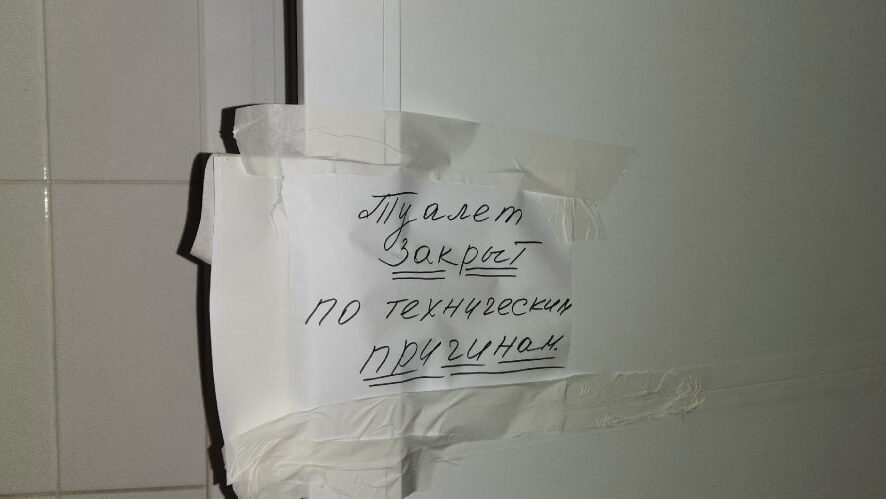 Туалет
Закрыт
по техническим
причинам.